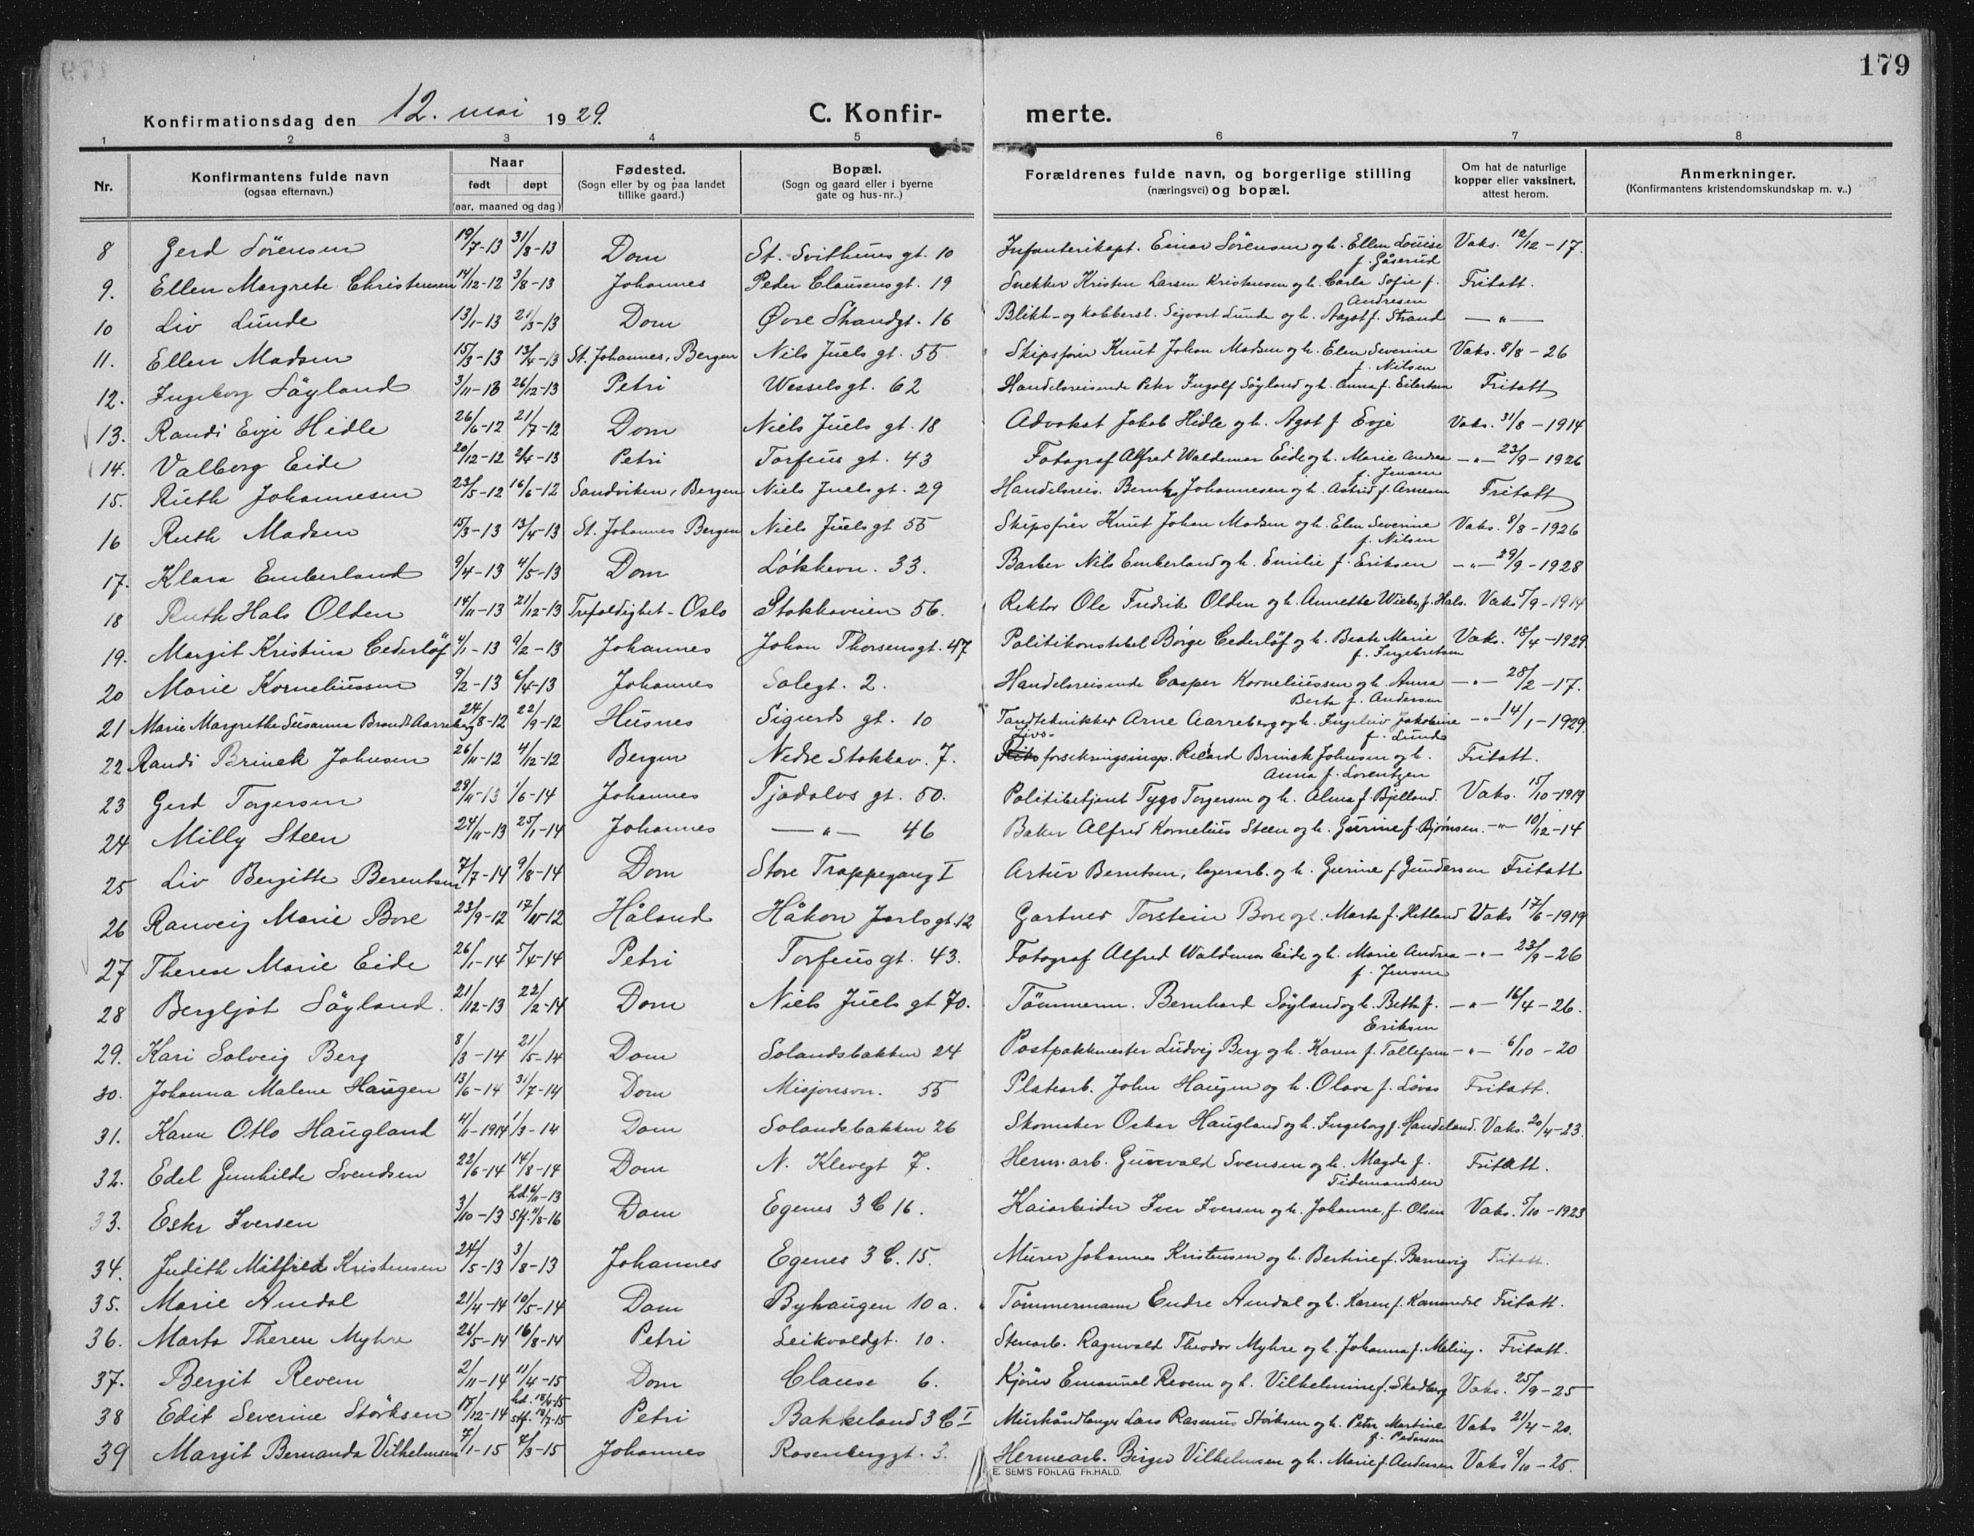 179
Konfirmationsdag den 12. mai 1929. C. Konfirmerte.
1 2 3 4 5 6 7 8
Nr. Konfirmantens fulde navn (ogsaa efternavn.) Naar født døpt (aar, maaned og dag) Fødested. (Sogn eller by og paa landet tillike gaard.) Bopæl. (Sogn og gaard eller i byerne gate og hus-nr..) Forældrenes fulde navn, og borgerlige stilling (næringsvei) og bopæl. Om hat de naturlige kopper eller vaksinert, attest herom. Anmerkninger. (Konfirmantens kristendomskundskap m. v..)
8 Gerd Sörensen 19/7-13 31/8-13 Dom St. Svithuns gt. 10 Infanterikapt. Einar Sörensen og h. Ellen Louise f. Gåserud Vaks. 12/12-17.
9. Ellen Margrete Christensen 14/12-12 3/8-13 Johannes Peder Clausens gt. 19 Snekker Kristen Larsen Kristensen og h. Carla Sofie f. Andresen Fritatt.
10 Liv Lunde 13/1-13 21/3-13 Dom Øvre Strandgt. 16 Blikk- og kobbersl. Sigvart Lunde og h. Aagot f. Strand — " —
11. Ellen Madsen 15/3-13 13/4-13 St. Johannes, Bergen Nils Juels gt. 55. Skipsfører Knut Johan Madsen og h. Elen Severine f. Nilsen Vaks. 8/8-26
12. Ingeborg Söyland 3/11-13 26/12-13 Petri Wessels gt. 62 Handelsreisende Peter Ingolf Söyland og h. Anna f. Eilertsen Fritatt
13. Randi Evje Hidle 26/6-12 21/7-12 Dom Niels Juels gt. 18 Advokat Jakob Hidle og h. Agot f Evje Vaks. 31/8-1914
14. Valborg Eide 20/12-12 2/4-13 Petri Torfæus gt. 43 Fotograf Alfred Waldemar Eide og h. Marie Andrea f. Jensen — " — 23/9-1926
15. Ruth Johannesen 23/5-12 16/6-12 Sandviken, Bergen Niels Juels gt. 29 Handelsreis. Bernh. Johannesen og h. Astrid f. Arnesen Fritatt
16 Ruth Madsen 15/3-13 13/4-13 St. Johannes Bergen Niels Juels gt 55 Skipsfører Knut Johan Madsen og h. Elen Severine f. Nilsen Vaks. 8/8-1926
17. Klara Emberland 9/4-13 4/5-13 Dom Løkkevn. 33. Barber Nils Emberland og h. Emilie f. Eriksen — " — 29/9-1928
18 Ruth Hals Olden 14/11-13 21/12-13 Trefoldighet-Oslo Stokkaveien 56. Rektor Ole Fredrik Olden og h. Annette Wieby f. Hals. Vaks 5/9-1914
19. Margit Kristina Cederlöf 4/1-13 9/2-13 Johannes Johan Thorsens gt. 47 Politikonstabel Børge Cederlöf og h. Beate Marie f. Ingebretsen Vaks. 18/4-1929.
20 Marie Korneliussen 9/2-13 6/4-13 Johannes Solegt. 2. Handelsreisende Casper Korneliussen og h. Anna Berta f. Andersen — " — 28/2-17.
21 Marie Margrethe Susanna Brandt Aarreberg 24/8-12 22/9-12 Husnes Sigurds gt. 10 Tandtekniker Arne Aarreberg og h. Ingeleiv Jakobine f. Lunde — " — 14/1-1929.
22 Randi Brinck Johnsen 26/11-12 4/12-12 Bergen Nedre Stokkav. 7. Livsforsikringsinsp. Rikard Brinck Johnsen og h. Anna f. Lorentzen Fritatt.
23 Gerd Torgersen 29/11-13 1/6-14 Johannes Tjodolvs gt. 50. Politibetjent Tygo Torgersen og h. Alma f. Bjelland. Vaks. 15/10-1919
24 Milly Steen 24/11-13 25/1-14 Johannes — " — 46 Baker Alfred Kornelius Steen og h. Gurine f. Bjørnsen. — " — 10/12-14
25 Liv Bergitte Berentsen 7/7-14 9/8-14 Dom Store Trappegang I Artur Berntsen, lagerarb. og h. Gurine f Gundersen Fritatt
26 Ranveig Marie Bore 23/9-12 17/11-12 Håland Håkon Jarls gt. 12 Gartner Torstein Bore og h. Marta f. Hetland Vaks 17/6-1919
27 Therese Marie Eide 26/1-14 5/4-14 Petri Torfeus gt. 43. Fotograf Alfred Waldemar Eide og h. Marie Andrea f. Jensen — " — 23/9-26
28 Bergljot Söyland. 21/12-13 22/2-14 Dom Niels Juels gt 70. Tömmerm. Bernhard Söyland og h. Betta f. Eriksen — " — 16/4-26.
29. Kari Solveig Berg 8/3-14 21/5-14 Dom Solandsbakken 24 Postpakkmester Ludvig Berg og h. Karen f. Tollefsen — " — 6/10-20
30. Johanna Malene Haugen 13/6-14 31/7-14 Dom Misjonsvn. 55 Platearb. John Haugen og h. Olava f. Lövås Fritatt.
31. Karen Otto Haugland 4/1-1914 1/3-14 Dom Solandsbakken 26 Skomaker Oskar Haugland og h. Ingeborg f. Handeland. Vaks. 20/4-23.
32. Edel Gunhilde Svendsen 22/6-14 14/8-14 Dom N. Klevegt 7. Herm. arb. Gunvald Svensen og h. Magda f. Tidemandsen Fritatt.
33. Ester Iversen 3/10-13 hd. 6/11-13 Stf. 11/8-16 Dom Egenes 3 C 16. Kaiarbeider Iver Iversen og h. Johanne f. Olsen Vaks. 5/10-1923
34. Judith Mitfred Kristensen 24/5-13 3/8-13 Johannes Egenes 3 C. 15. Murer Johannes Kristensen og h. Bertine f. Barnevig Fritatt.
35. Marie Amdal 21/4-14 10/5-14 Dom Byhaugen 10 a. Tömmermann Endre Amdal og h. Karen f. Kammedal Fritatt.
36. Marta Therese Myhre 26/5-14 16/8-14 Petri Leikvoldgt. 10. Stenarb. Ragnvald Theodor Myhre og h. Johanna f. Meling. Fritatt.
37. Bergit Revem 2/11-14 11/4-15 Dom Clause 6. Kjörer Emanuel Revem og h. Vilhelmine f. Skadberg Vaks. 25/9-25
38 Edit Severine Störksen 17/12-14 hd. 18/4-15 Stf. 18/7-15 Petri Bakkeland 3 C I Murhåndlanger Lars Rasmus Störksen og h. Petra Martine f. Pedersen Vaks 21/4-20.
39 Margit Bernanda Vilhelmsen 7/1-15 7/3-15 Johannes Rosenberggt. 3. Hermearb. Birger Vilhelmsen og h. Marie f. Andersen Vaks 9/10-25.
E. SEM'S FORLAG FR.HALD.